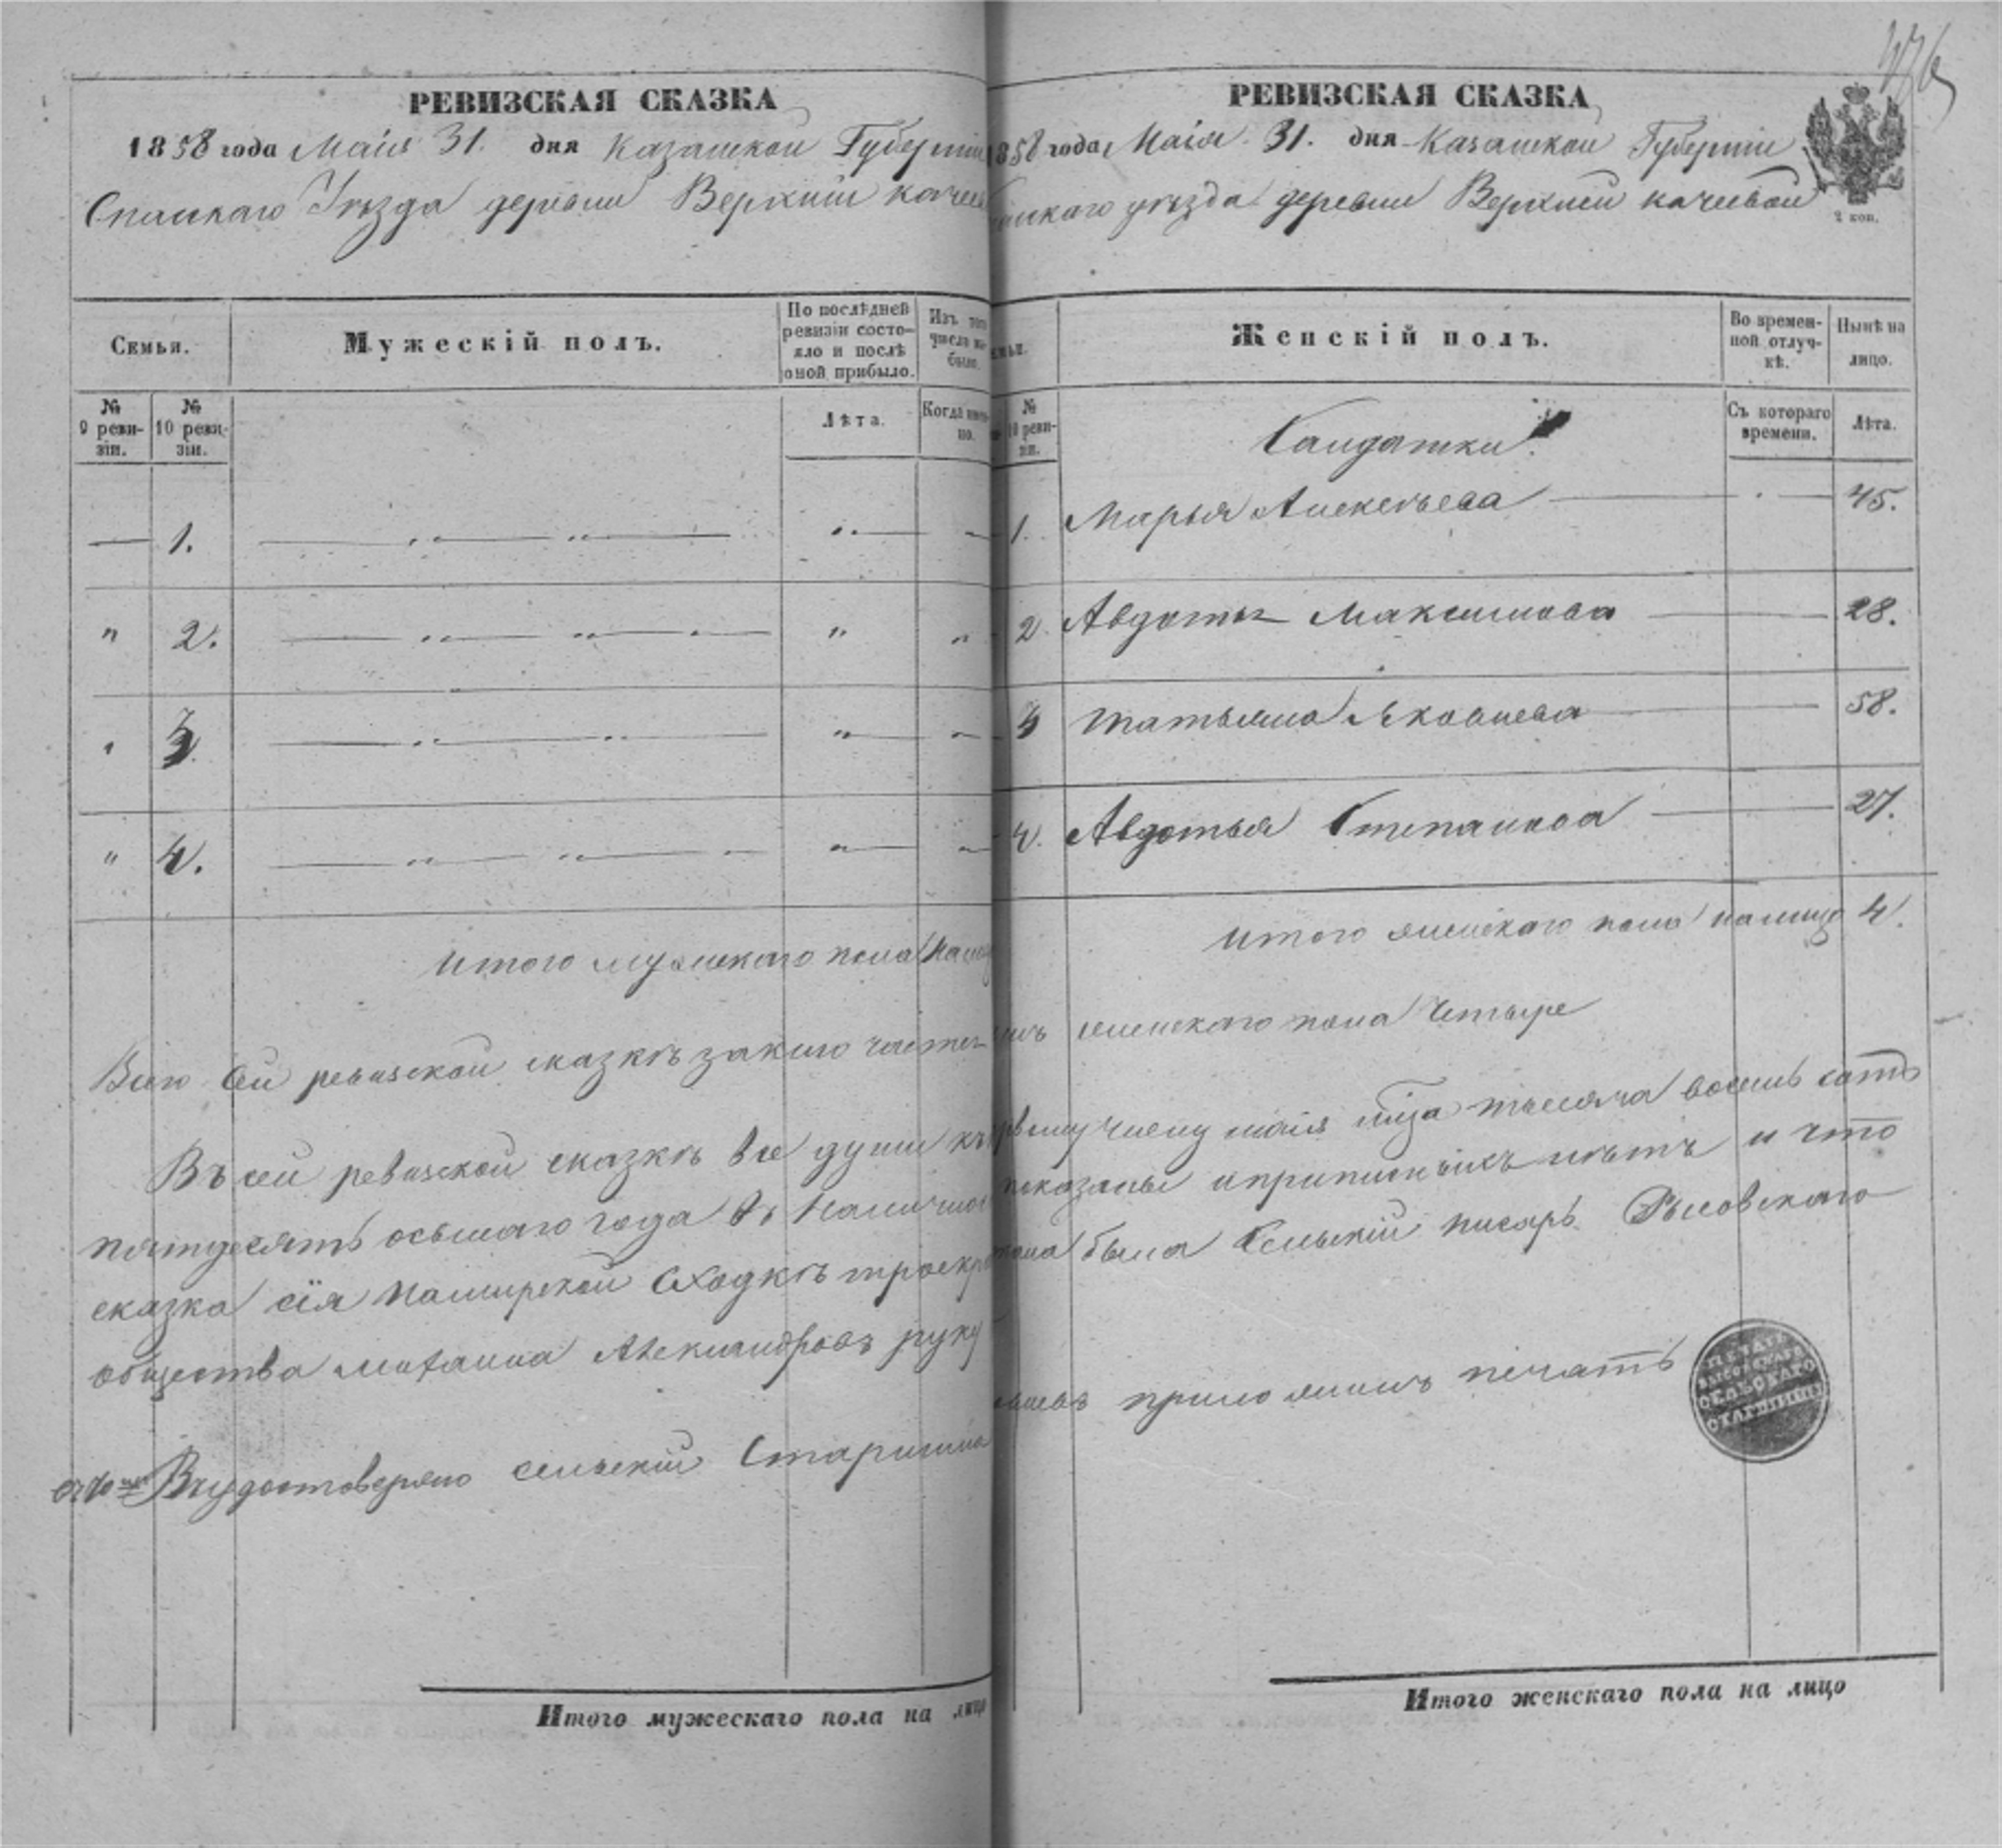 РЕВИЗСКАЯ СКАЗКА
1858 года Маія 31. дня Казанской Губерніи
Спаскаго Уѣзда деревни Верхній качеев
Семьи.
Мужескій полъ.
По послѣдней ревизіи состояло и послѣ оной прибыло.
Изъ того числа выбыло.
№ 9 ревизіи.
№ 10 ревизіи.
Лѣта.
Когда именно.
— 1.
" 2.
" 3.
" 4.
Итого мужескаго пола
Всего сей ревизской сказкѣ заключается
Въ сей ревизской сказкѣ все души къ
пятдесятъ осьмаго года в наличнос
сказка сія намирской сходкѣ троекра
общества Михаила Александровъ руку
Въ удостоверено сельскій Старшина
Итого мужескаго пола на лицо
476
РЕВИЗСКАЯ СКАЗКА
1858 года, Маія 31. дня Казанской Губерніи
паскаго уѣзда деревни Верхней качеевой
2 коп.
Семьи.
Женскій полъ.
Во временной отлучкѣ.
Нынѣ на лицо.
№ 10 ревизіи.
Съ котораго времени.
Лѣта.
Салдатки.
1. Марья Алексѣева 45.
2. Авдотья Максимова 28.
3 Татьяна Яковлева 58.
4. Авдотья Степанова 27.
Итого женскаго пола налицо 4.
женскаго пола Четыре
первому числу маія мца тысяча восемь сотъ
показаны и прописныхъ нѣтъ и что
была Сельскій писарь
приложилъ печать
ПЕЧАТЬ
СЕЛЬСКАГО
СТАРШИНЫ
Итого женскаго пола на лицо